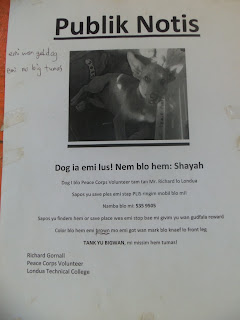 Publik Notis
emi wan gudfala dog
emi no big tumas
Dog ia emi lus! Nem blo hem: Shayah
Dog blo Peace Corps Volunteer tam tan Mr. Richard lo Londua
Sapos yu save ples emi stap PLIS ringim mobil blo mi!
Namba blo mi: 535 9506
Sapos yu findem hem or save place wea emi stap bae mi givim yu wan gudfala reward
Color blo hem emi brown mo emi gat wan mark blo knaef lo front leg
TANK YU BIGWAN, mi missim hem tumas!
Richard Gornall
Peace Corps Volunteer
Londua Technical College